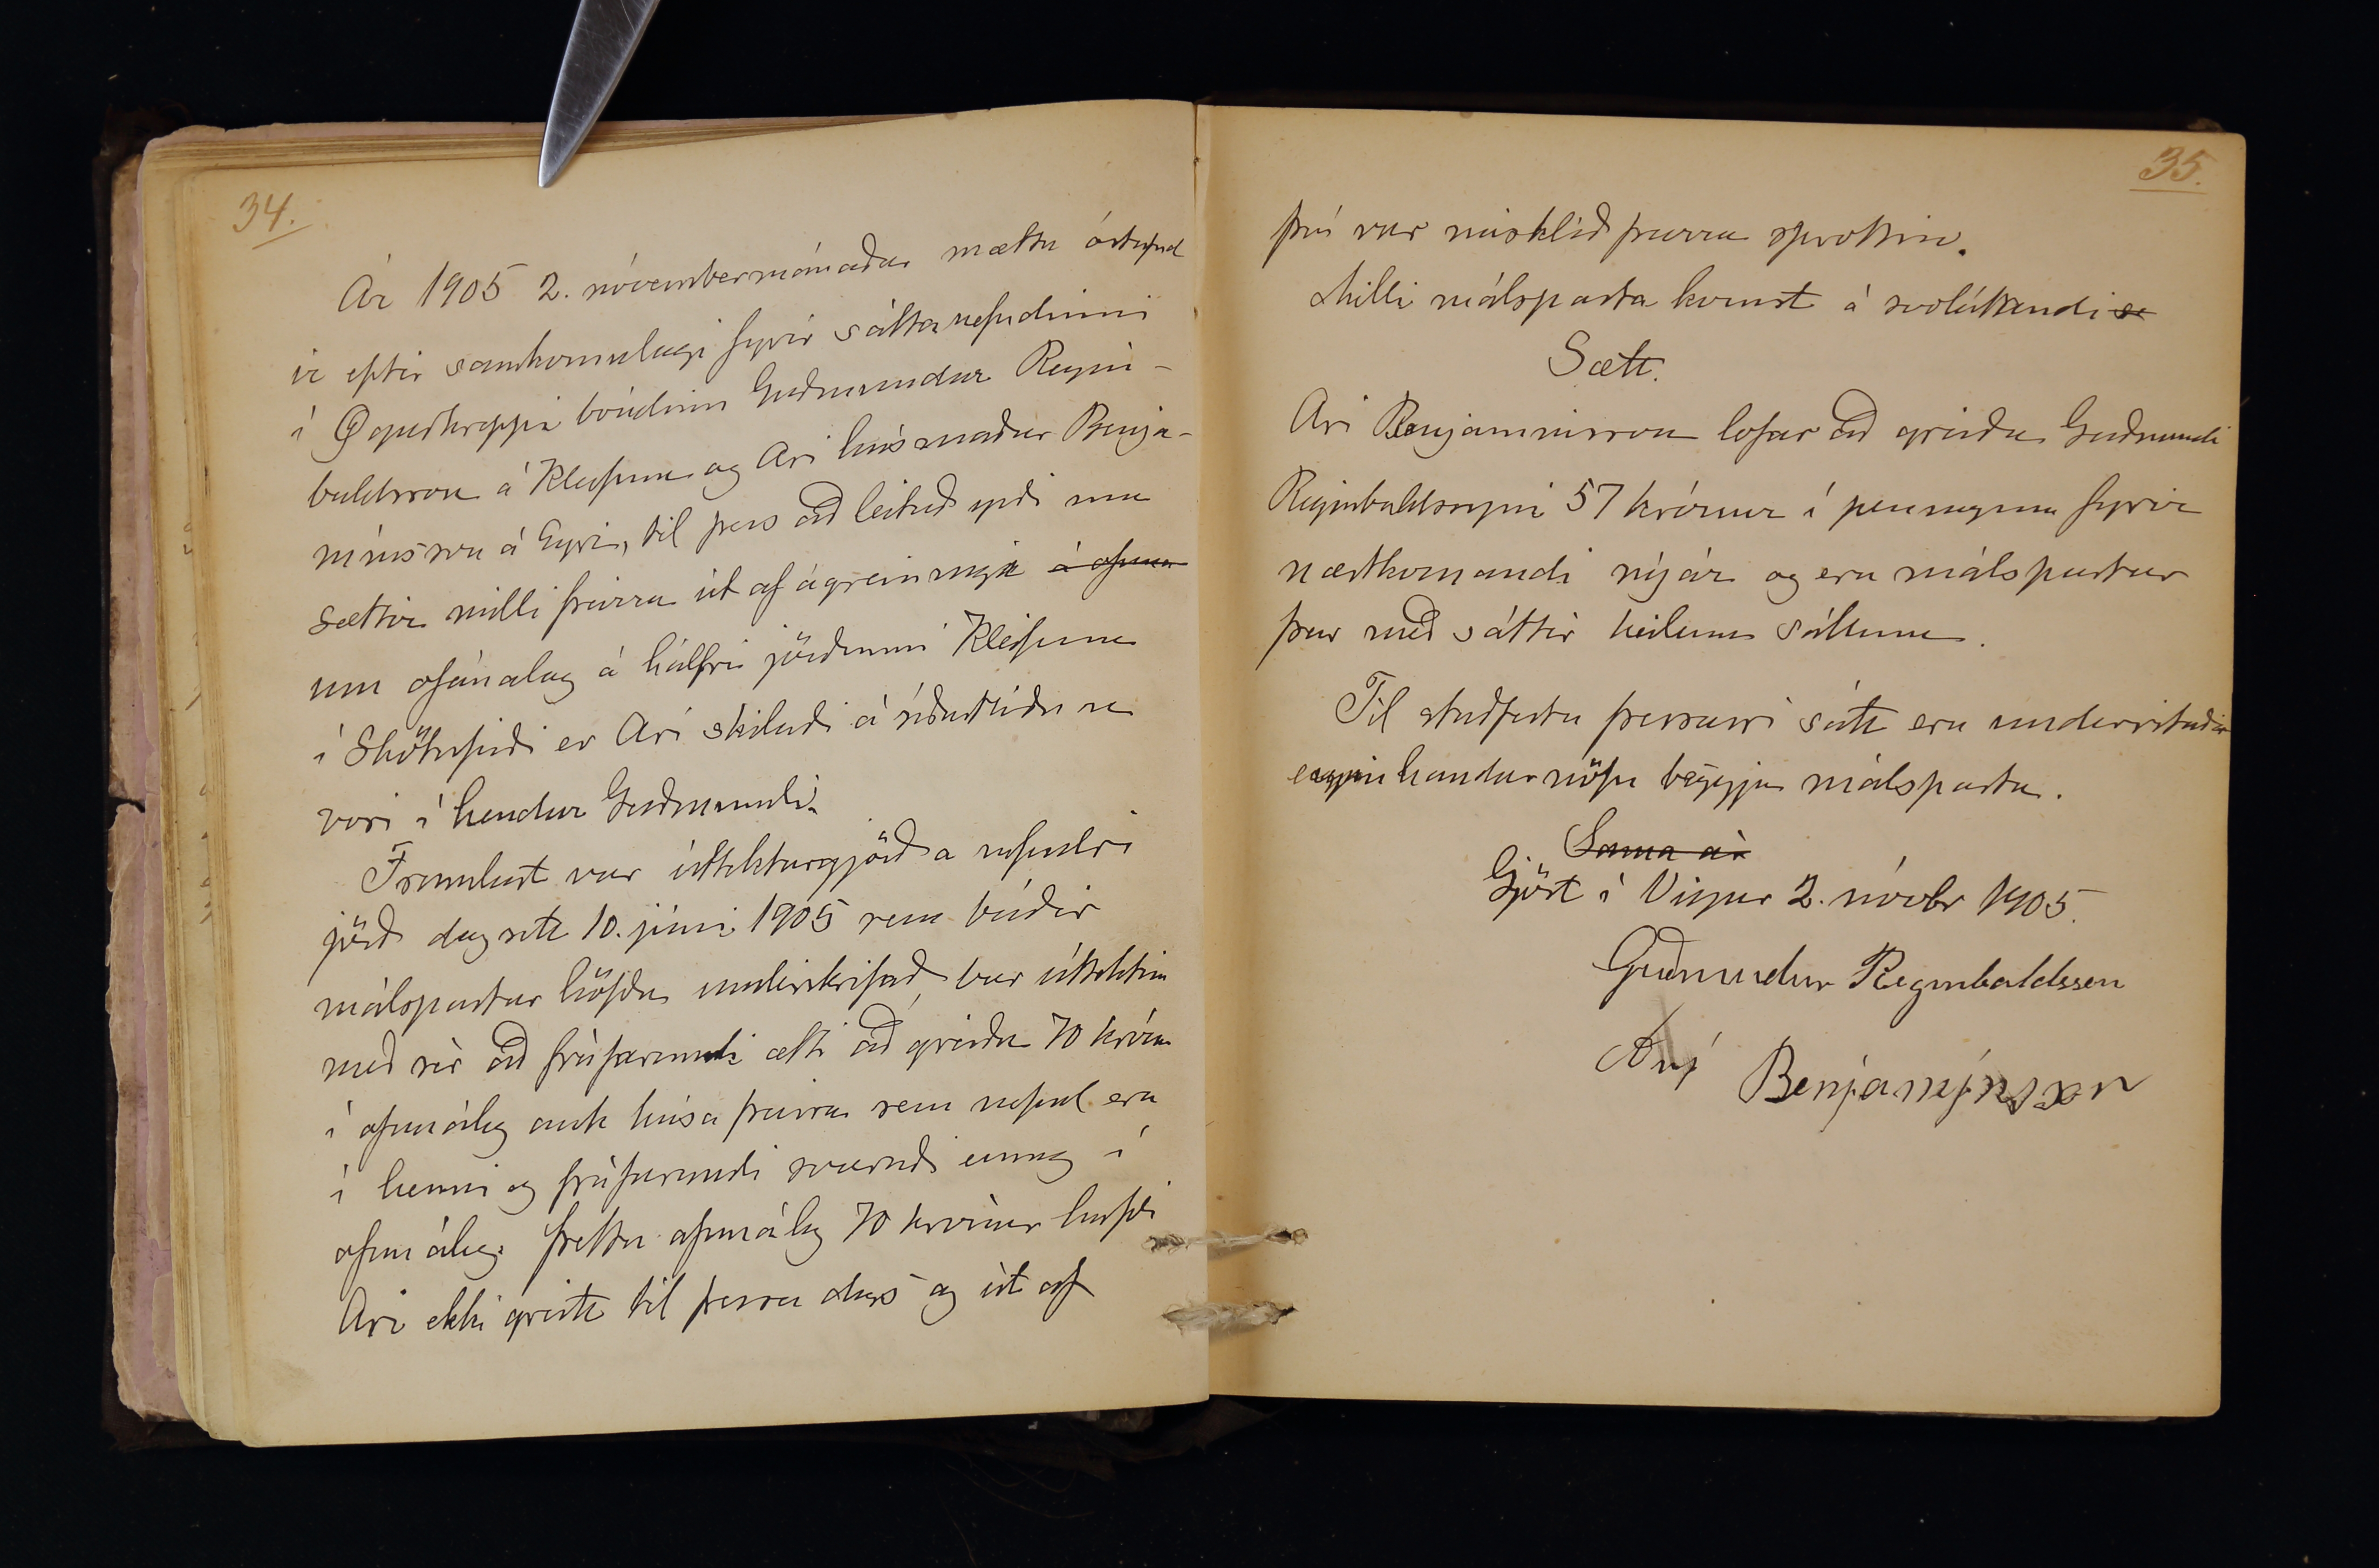 34.
Ár 1905 2. nóvembermánaðar mættu óstefnd
ir eptir samkomulagi fyrir sáttanefndinni
í Ögurhreppi bóndinn Guðmundur Regin-
baldsson á Kleifum og Ari húsmaður Benja-
mínsson á Eyri, til þess að leitað yrði um
sættir milli þeirra út af ágreiningi á ofana
um ofanálag á hálfri jörðinni Kleifum
í Skötufirði er Ari skilaði á síðastliðnu
vori í hendur Guðmundi.
Framlögð var úttektargjörð a nefndri
jörð dagsett 10. júní 1905 sem báðir
málspartar höfðu undirskrifað, bar úttektin
með sér að fráfarandi ætti að greiða 70 krónur
í ofanálag auk húsa þeirra sem nefnd eru
í henni og fráfarandi svaraði einnig í
ofanálag. Þetta ofanálag 70 krónur hafði
Ari ekki greitt til þessa dags og út af
35.
því var misklíð þeirra sprottin.
Milli málsparta komst á svolátandi
Sætt.
Ari Benjamínsson lofar að greiða Guðmundi
Reginbaldssyni 57 krónur í peningum fyrir
næstkomandi nýár og eru málspartar
þar með sáttir heilum sáttum.
Til staðfestu þessari sátt eru undirrituð
eigin handar nöfn beggja málsparta.
Sama ár
Gjört í Vigur 2. nóvbr 1905.
Guðmundur Reginbaldssen
Ari Benjamínsson